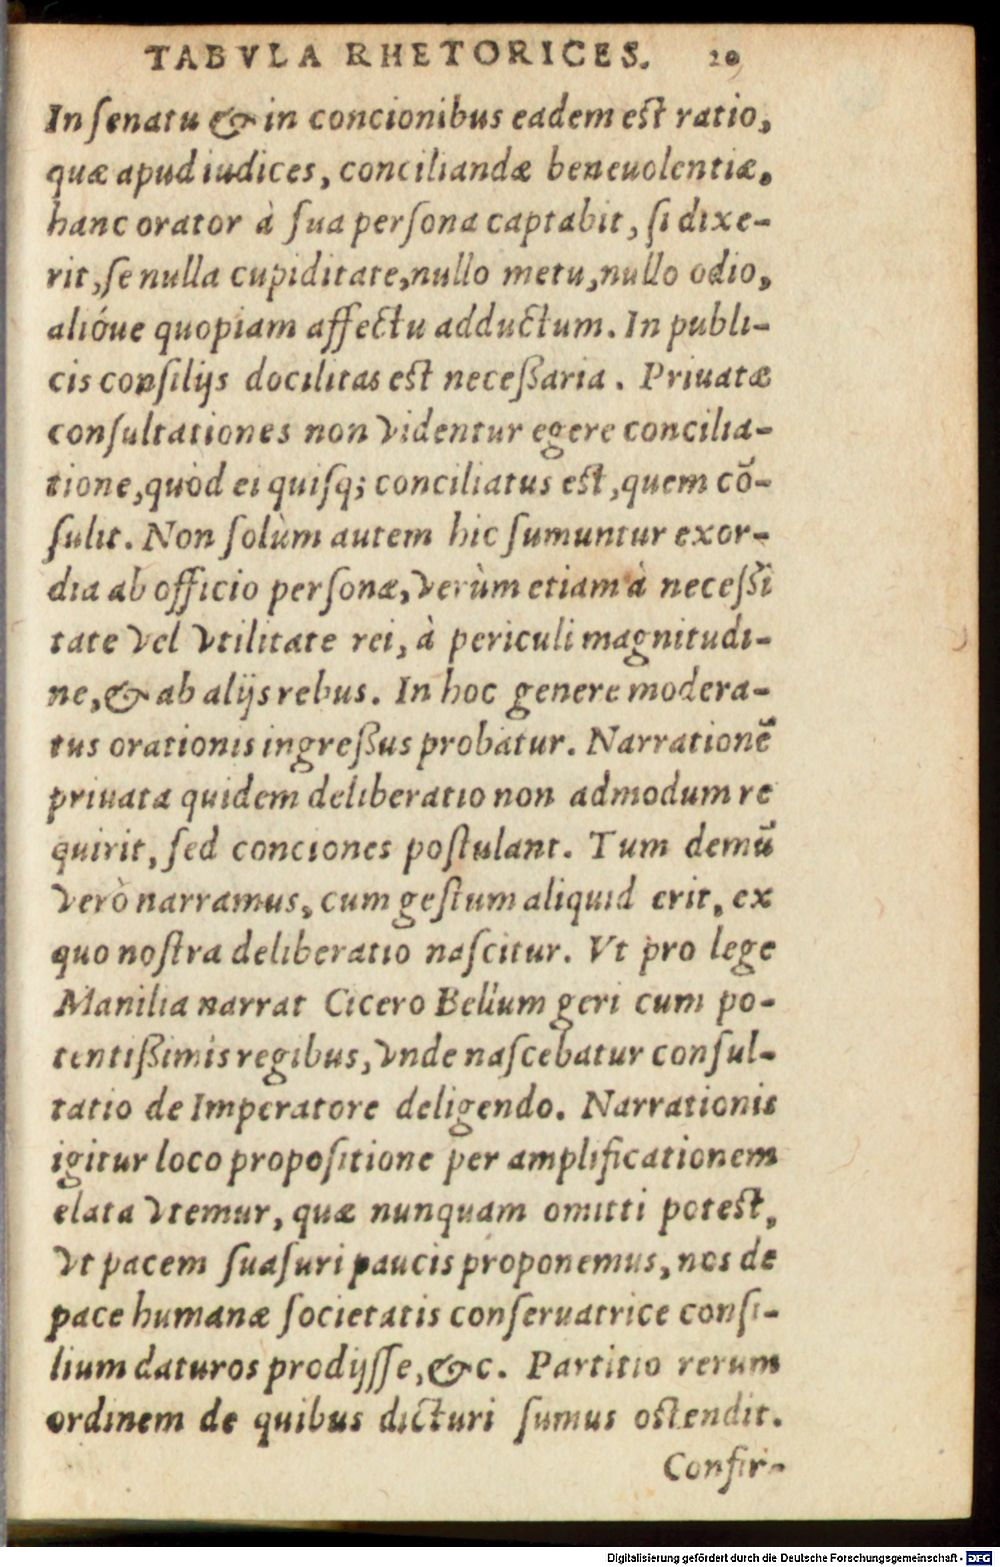 TABVLA RHETORICES. 20
In ſenatu & in concionibus eadem est ratio,
quæ apud iudices, conciliandæ beneuolentiæ.
hanc orator à ſua perſona captabit, ſi dixe-
rit, ſe nulla cupiditate, nullo metu, nullo odio,
alióue quopiam affectu adductum. In publi-
cis conſilijs docilitas est neceßaria. Priuatæ
conſultationes non videntur egere concilia-
tione, quòd ei quiſq; conciliatus est, quem cō-
ſulit. Non ſolùm autem hic ſumuntur exor-
dia ab officio perſonæ, verùm etiam à neceßi
tate vel vtilitate rei, à periculi magnitudi-
ne, & ab alijs rebus. In hoc genere modera-
tus orationis ingreßus probatur. Narrationē
priuata quidem deliberatio non admodum re
quirit, ſed conciones poſtulant. Tum demū
verò narramus, cum geſtum aliquid erit, ex
quo noſtra deliberatio naſcitur. Vt pro lege
Manilia narrat Cicero Bellum geri cum po-
tentißimis regibus, vnde naſcebatur conſul-
tatio de Imperatore deligendo. Narrationis
igitur loco propoſitione per amplificationem
elata vtemur, quæ nunquam omitti potest,
vt pacem ſuaſuri paucis proponemus, nos de
pace humanæ ſocietatis conſeruatrice conſi-
lium daturos prodijſſe, &c. Partitio rerum
ordinem de quibus dicturi ſumus oſtendit.
Confir-
Digitalisierung gefördert durch die Deutsche Forschungsgemeinschaft - DFG